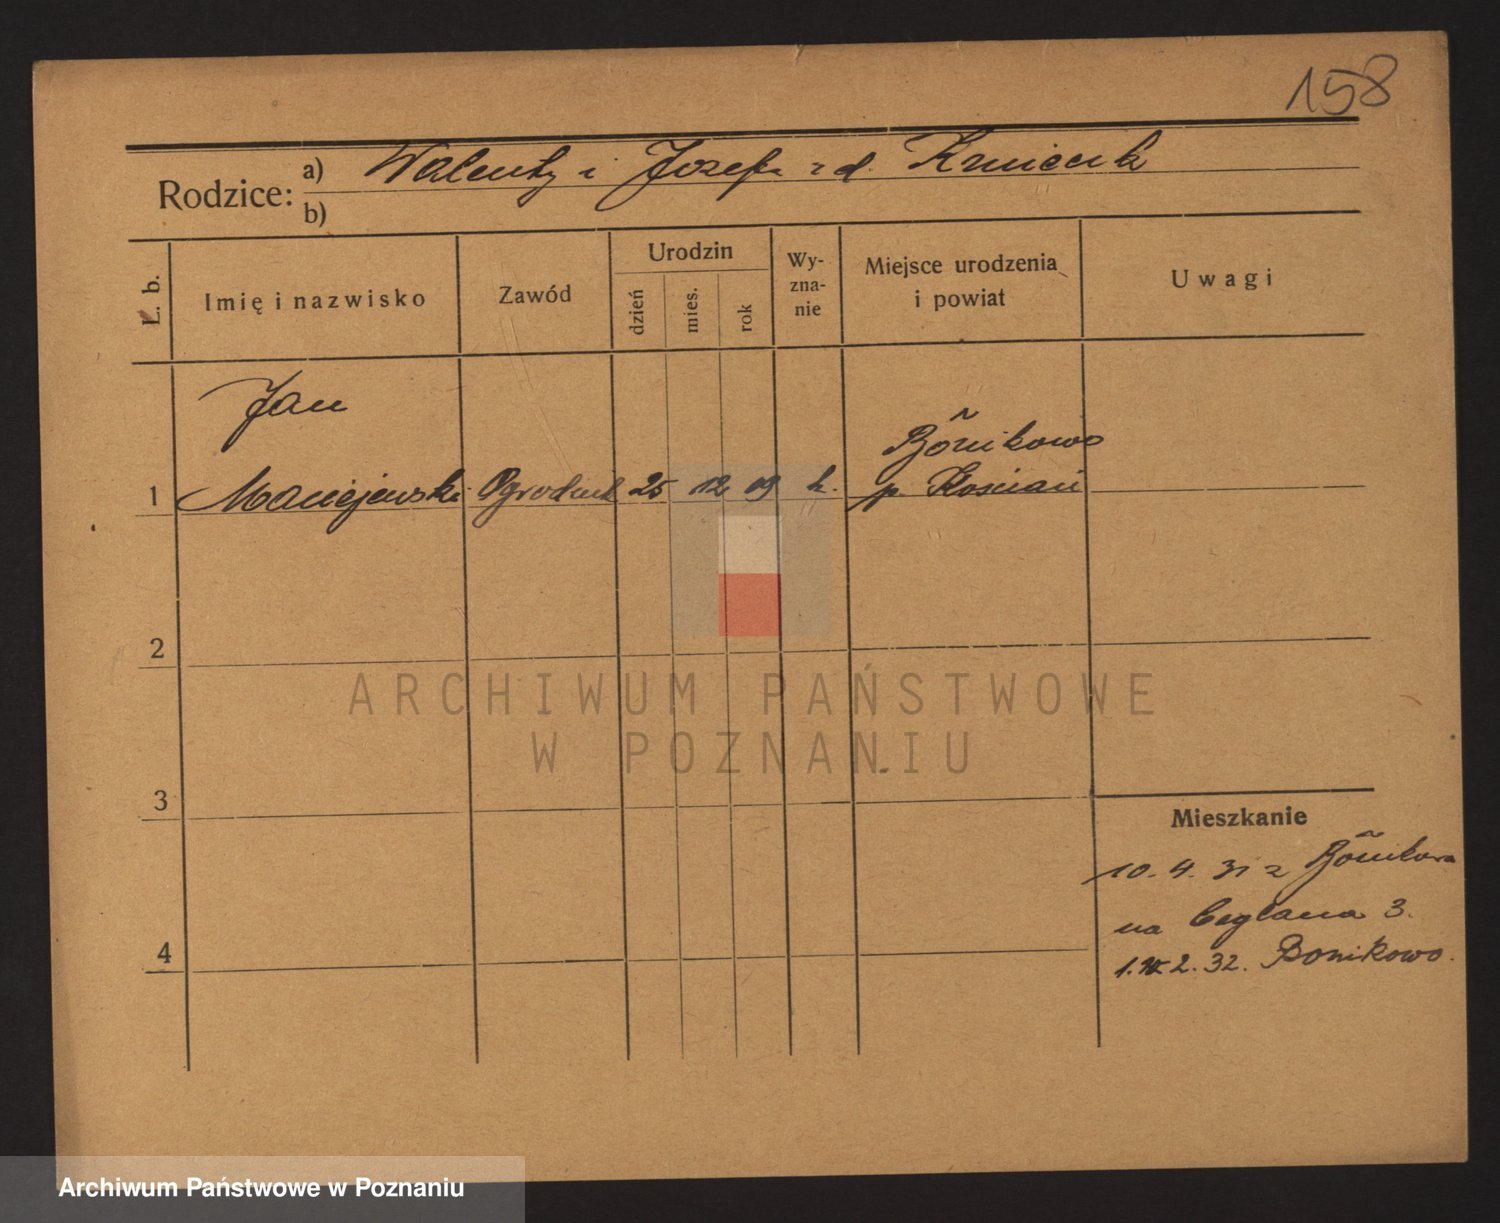 158
Rodzice: a) Walenty i Józefa z d. Kmiecik
b)
L. b.
Imię i nazwisko
Zawód
Urodzin
dzień
mies.
rok
Wy-
zna-
nie
Miejsce urodzenia
i powiat
Uwagi
Jan
1 Maciejewski Ogrodnik 25 12 09 k. Bonikowo
p. Kościan
2
3
4
Mieszkanie
10. 4. 31 z Bonikowa
na Ceglana 3.
2. 32. Bonikowo.
ARCHIWUM PAŃSTWOWE
W POZNANIU
Archiwum Państwowe w Poznaniu